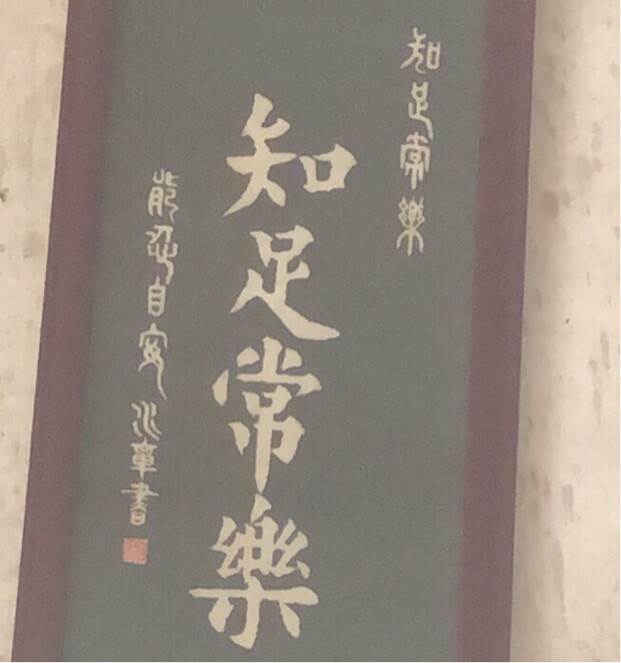 知足常樂
知足常樂
能忍自安 水章書